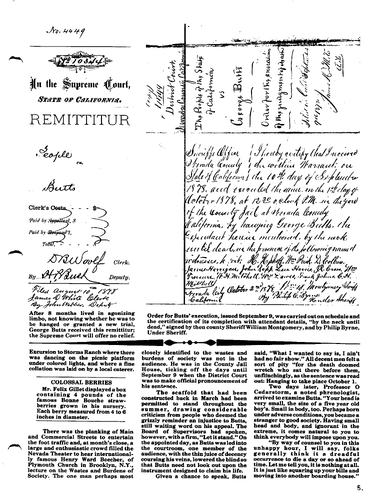 No. 4449
No 10344
In the Supreme Court,
STATE OF CALIFORNIA.
REMITTITUR
People
vs
Butts
Clerk's Costs, - - $
Paid by Appellant, $
Paid by
Total, - - $
D. B. Woolf Clerk
By Deputy.
Filed August 10th 1878
District Court
Nevada County California
The People of the State
of California
vs
George Butts
Order for the execution
of the judgment of death
Sheriff's Office
Nevada County
State of California
I hereby certify that I received
the within Warrant on
the 10th day of September
1878. and executed the same on the 1st day of
October 1878, at 12.20 o'clock P.M. in the yard
of the County Jail at Nevada County
California, by hanging George Butts, the
defendant herein mentioned, by the neck
until dead, in the presence of the following named
witnesses, to wit,
Nevada City October 2nd 1878
California
Wm. H. Montgomery Sheriff
By Philip G. Byrne
Under Sheriff.
After 8 months lived in agonizing
limbo, not knowing whether he was to
be hanged or granted a new trial,
George Butts received this remittitur:
the Supreme Court will offer no relief.
Order for Butts' execution, issued September 9, was carried out on schedule and
the certification of its completion with attendant details, "by the neck until
dead," signed by then county Sheriff William Montgomery, and by Philip Byrne,
Under Sheriff.
Excursion to Storms Ranch where there
was dancing on the picnic platform
under colored lights, and where a fine
collation was laid on by a local caterer.
COLOSSAL BERRIES
Mr. Felix Gillet displayed a box
containing 4 pounds of the
famous Bonne Bouche straw-
berries grown in his nursery.
Each berry measured from 4 to 6
inches in diameter.
There was the planking of Main
and Commercial Streets to entertain
the foot traffic and, at month's close, a
large and enthusiastic crowd filled the
Nevada Theater to hear international-
ly famous Henry Ward Beecher, of
Plymouth Church in Brooklyn, N.Y.,
lecture on the Wastes and Burdens of
Society. The one man perhaps most
closely identified to the wastes and
burdens of society was not in the
audience. He was in the County Jail
House, ticking off the days until
September 9 when the District Court
was to make official pronouncement of
his sentence.
The scaffold that had been
constructed back in March had been
permitted to stand throughout the
summer, drawing considerable
criticism from people who deemed the
ominous reminder an injustice to Butts,
still waiting word on his appeal. The
Board of Supervisors had spoken,
however, with a firm, "Let it stand." On
the appointed day, as Butts was led into
the courtroom, no one amidst the
audience, with the thin juice of decency
coursing his veins, lowered the blind on
that Butts need not look out upon the
instrument designed to claim his life.
Given a chance to speak, Butts
said, "What I wanted to say is, I ain't
had no fair show." All decent men felt a
sort of pity "for the death doomed
wretch who sat there before them,
unflinchingly, as the sentence was read
out: Hanging to take place October 1.
Two days later, Professor O
Cedarstrom, a noted phrenologist,
arrived to examine Butts. "Your head is
very small, the size of a five year old
boy's. Small in body, too. Perhaps born
under adverse conditions, you became a
stranger to good society. Having small
head and body, and ignorant in the
extreme, it comes natural to you to
think everybody will impose upon you.
"By way of counsel to you in this
unhappy hour, I will say, folks
generally think it is a dreadful
occurrence to die a day or so ahead of
time. Let me tell you, it is nothing at all.
It is just like squaring up your bills and
moving into another boarding house."
5.